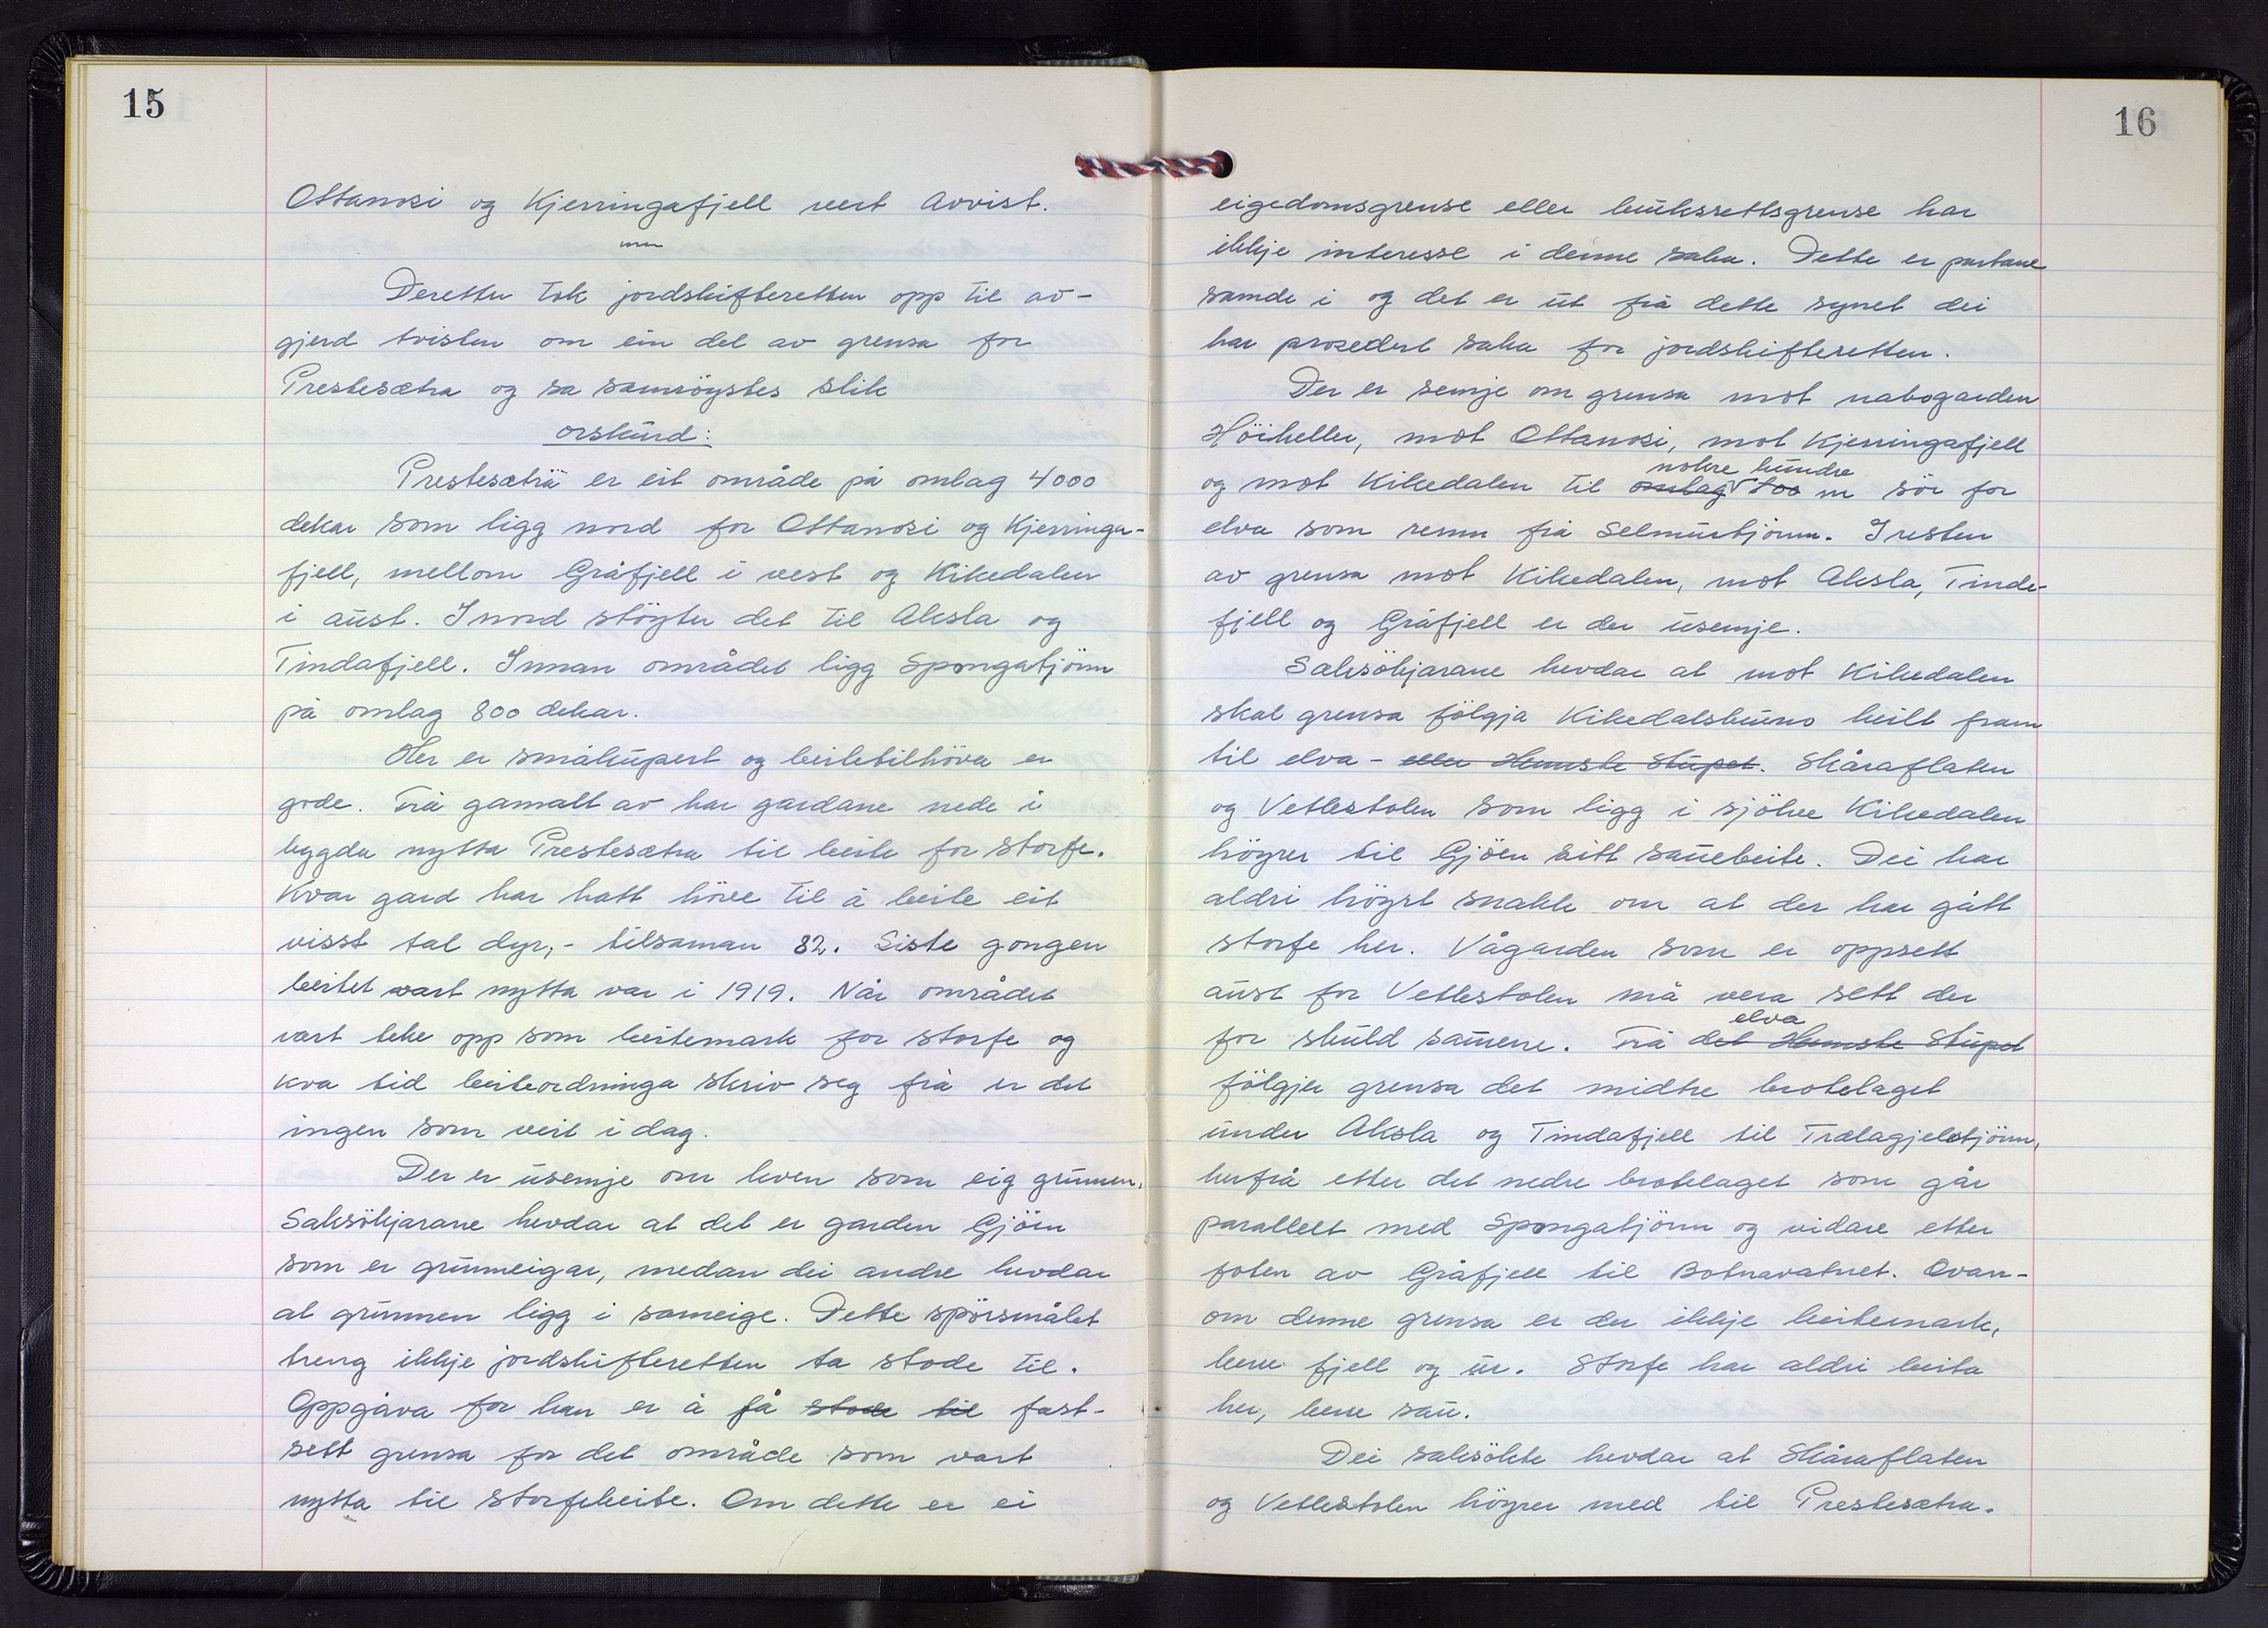 15
Ottanosi og Kjerringafjell vert avvist.
Deretter tok jordskifteretten opp til av-
gjerd tvisten om ein del av grensa for
Prestesætra og sa samrøystes slik
orskurd:
Prestesætra er eit område på omlag 4000
dekar som ligg nord for Ottanosi og Kjerringa-
fjell, mellom Gråfjell i vest og Kikedalen
i aust. I nord støyter det til Aksla og
Tindafjell. Innan området ligg Spongatjönn
på omlag 800 dekar.
Her er småkupert og beitetilhöva er
gode. Frå gamalt av har gardane nede i
bygda nytta Prestesætra til beite for storfe.
Kvar gard har hatt höve til å beite eit
visst tal dyr,- tilsaman 82. Siste gongen
beitet vart nytta var i 1919. Når området
vart teke opp som beitemark for storfe og
kva tid beiteordninga skriv seg frå er det
ingen som veit i dag.
Der er usemje om kven som eig grunnen.
Saksökjarane hevdar at det er garden Gjöen
som er grunneigar, medan dei andre hevdar
at grunnen ligg i sameige. Dette spörsmålet
treng ikkje jordskifteretten ta stode til.
Oppgåva for han er å få stode til fast-
sett grensa for det område som vart
nytta til storfebeite. Om dette er ei
16
eigedomsgrense eller bruksrettsgrense har
ikkje interesse i denne saka. Dette er partane
samde i og det er ut frå dette synet dei
har prosedert saka for jordskifteretten.
Der er semje om grensa mot nabogarden
Höiheller, mot Ottanosi, mot Kjerringafjell
nokre hundre
og mot Kikedalen til omlag 700 m sör for
elva som renn frå Selmurtjönn. I resten
av grensa mot Kikedalen, mot Aksla, Tinde-
fjell og Gråfjell er der usemje.
Saksökjarane hevdar at mot Kikedalen
skal grensa fölgja Kikedalsbruno heilt fram
til elva - eller Hemste Stupet. Skåraflaten
og Vetlestolen som ligg i sjölve Kikedalen
höyrer til Gjöen sitt sauebeite. Dei har
aldri höyrt snakk om at der har gått
storfe her. Vågarden som er oppsett
aust for Vetlestolen må vera sett der
for skuld sauene. Frå det Hemste Stupet
elva
fölgjer grensa det midtre brotelaget
under Aksla og Tindafjell til Trælagjelstjönn,
herfrå etter det nedre brotelaget som går
parallelt med Spongatjönn og vidare etter
foten av Gråfjell til Botnavatnet. Ovan-
om denne grensa er der ikkje beitemark,
berre fjell og ur. Storfe har aldri beita
her, berre sau.
Dei saksökte hevdar at Skåraflaten
og Vetlestolen höyrer med til Prestesætra.